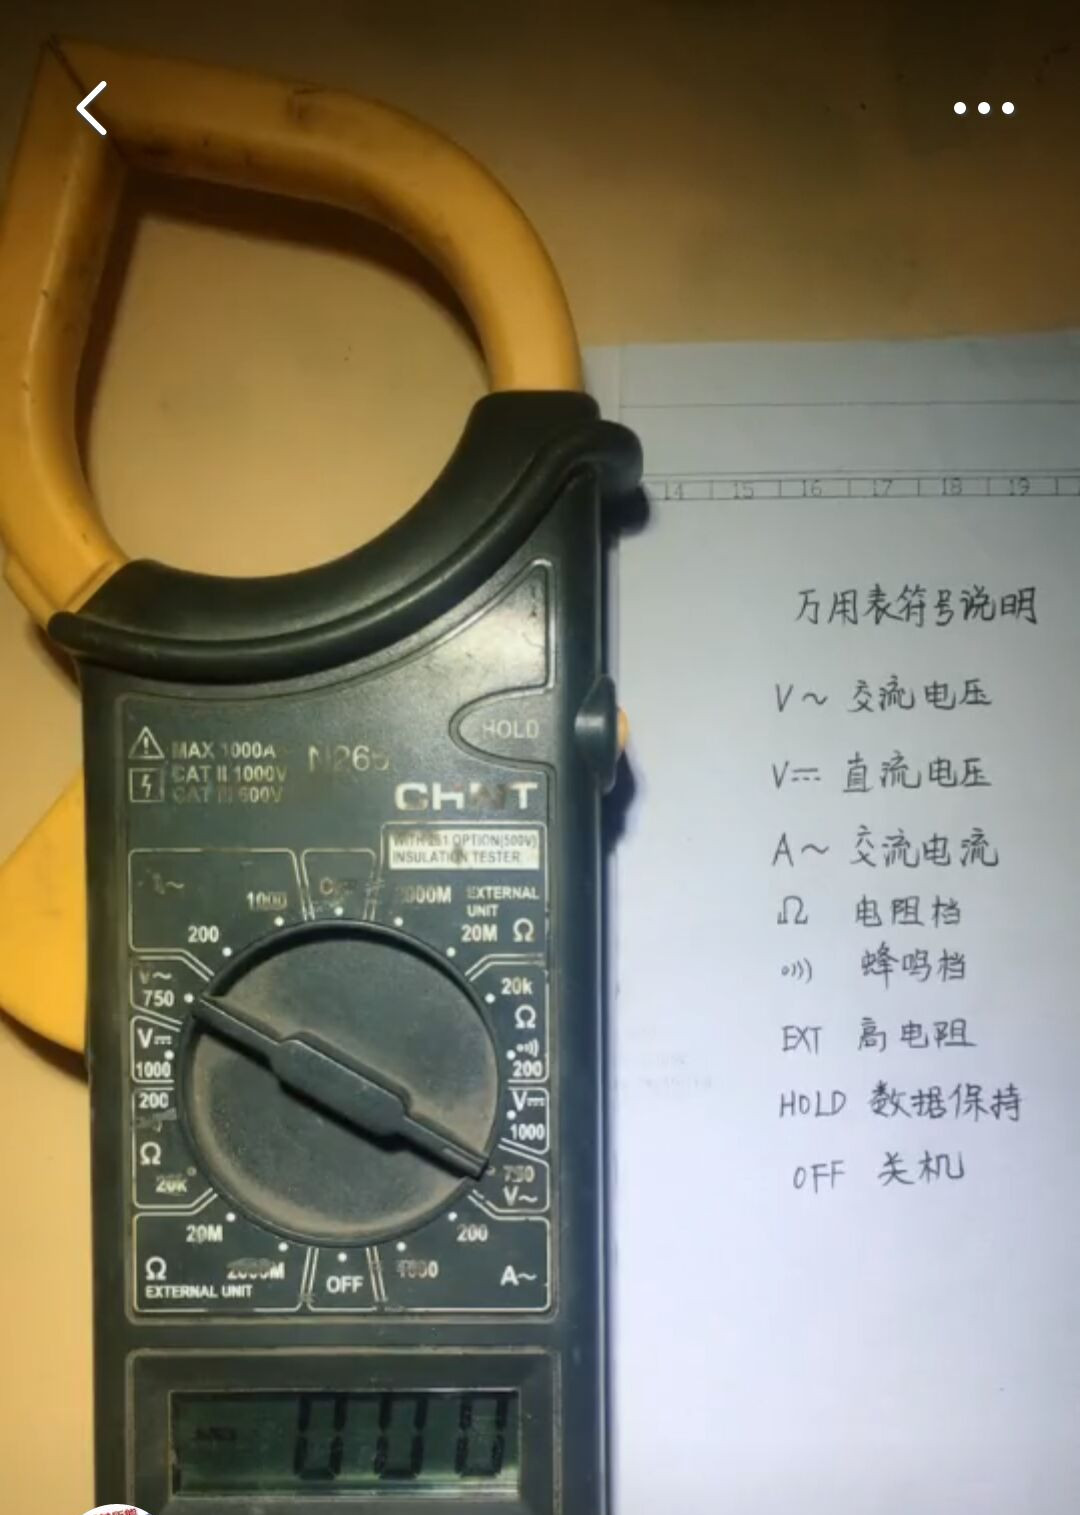 14 15 16 17 18 19
万用表符号说明
V～ 交流电压
V⎓ 直流电压
A～ 交流电流
Ω 电阻档
o))) 蜂鸣档
EXT 高电阻
HOLD 数据保持
OFF 关机
HOLD
MAX 1000A
CAT II 1000V
CAT III 600V
N266
CHNT
WITH 261 OPTION(500V)
INSULATION TESTER
1000
200
2000M EXTERNAL
UNIT
20M Ω
V～
750
20k
Ω
V⎓
1000
o)))
200
200
Ω
20k
V⎓
1000
750
V～
20M
2000M
Ω
EXTERNAL UNIT
OFF
200
1000
A～
000